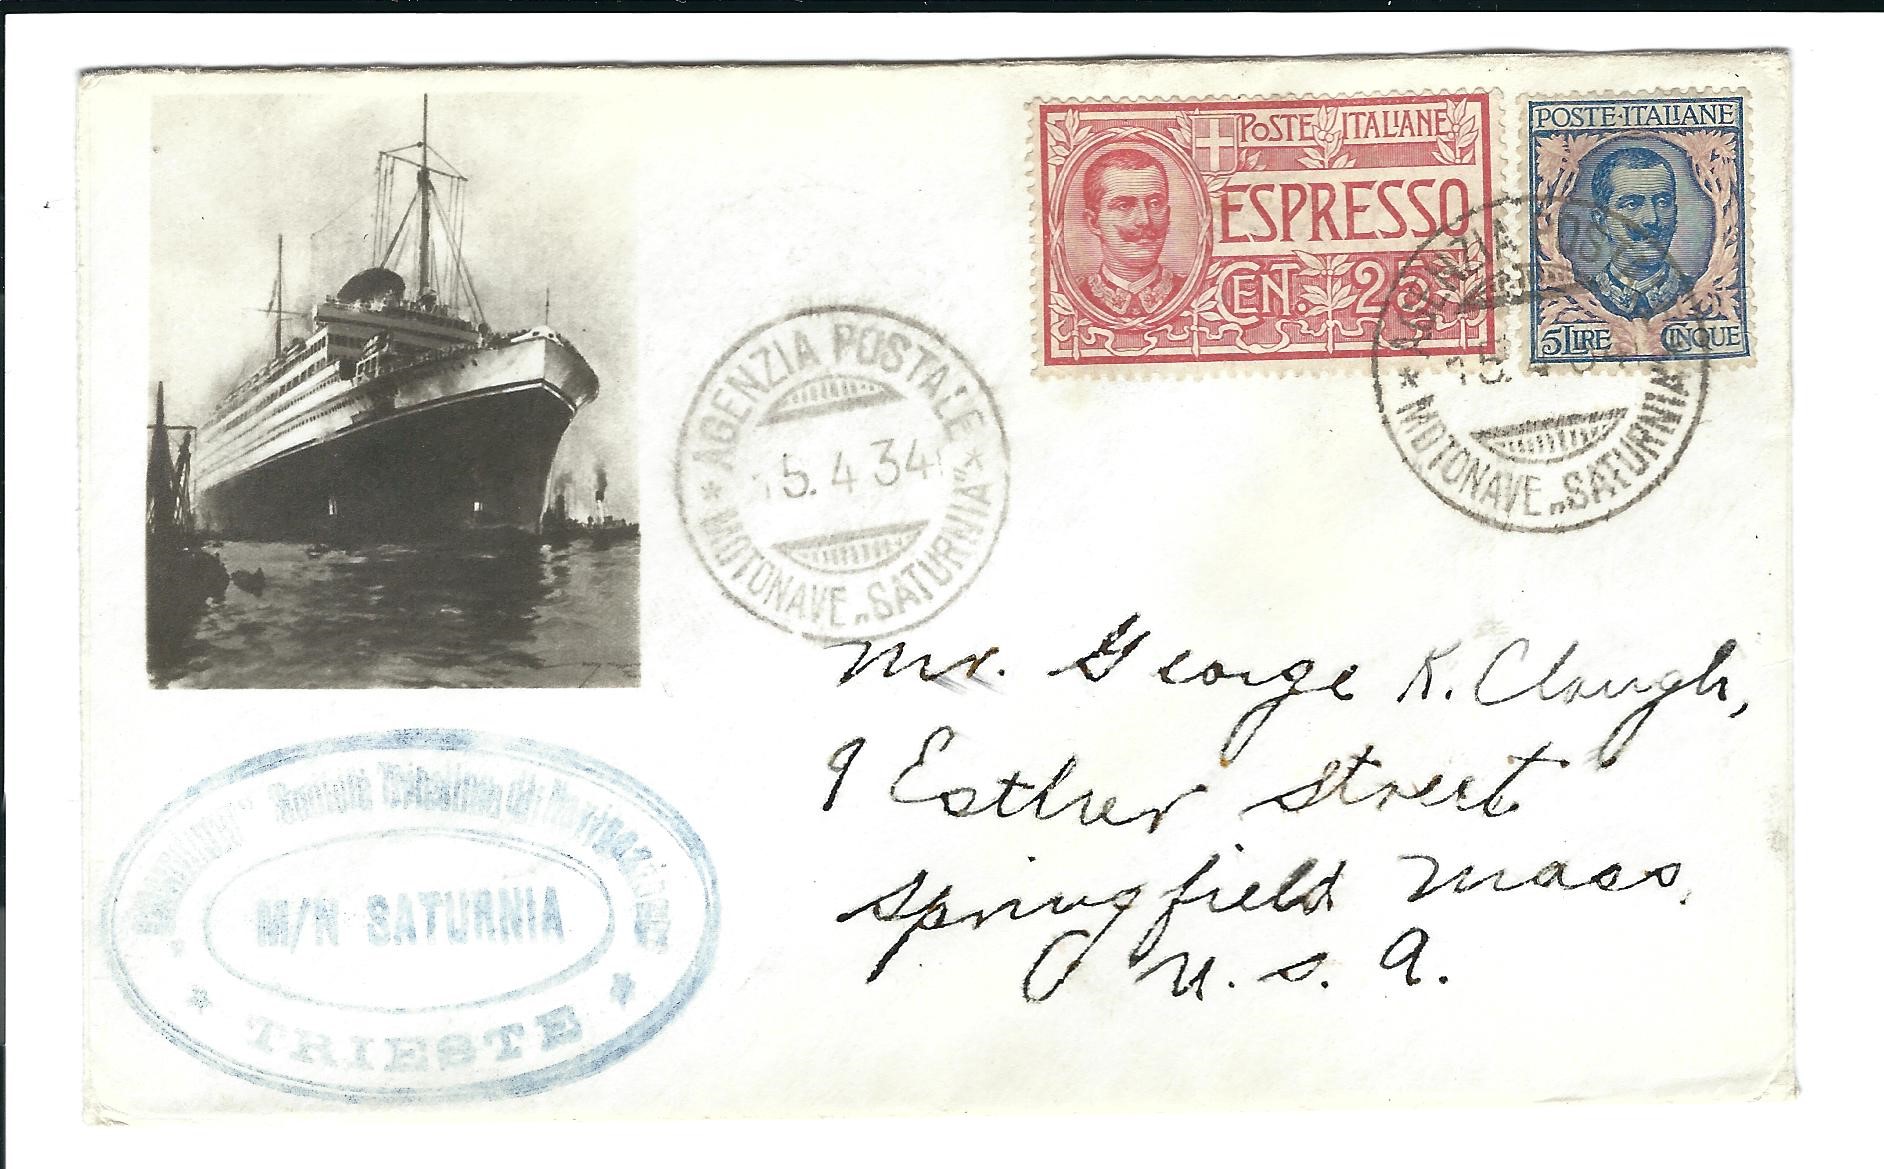 POSTE ITALIANE
ESPRESSO
CEN. 25
POSTE·ITALIANE
5 LIRE CINQUE
* AGENZIA POSTALE *
15. 4 34
MOTONAVE „SATURNIA"
* AGENZIA POSTALE
15. 4
MOTONAVE „SATURNIA
Mr. George K. Clough,
9 Esther Street
Springfield Mass.
U. S. A.
"COSULICH" Società Triestina di Navigazione
M/N SATURNIA
* TRIESTE *